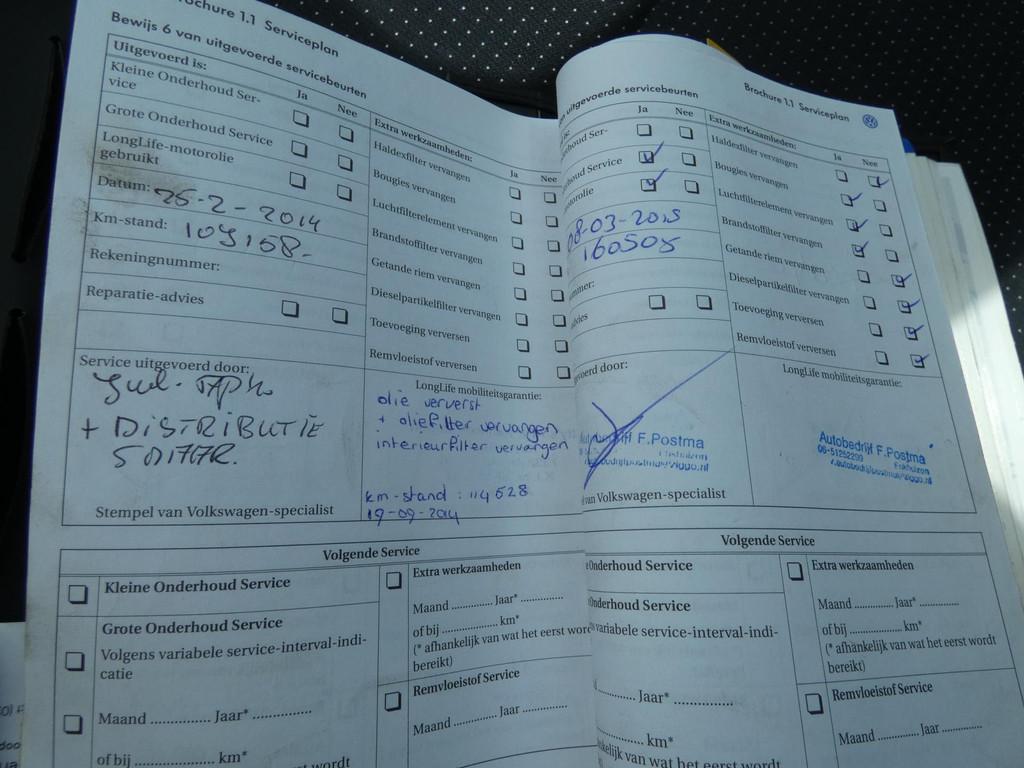 Brochure 1.1 Serviceplan
Bewijs 6 van uitgevoerde servicebeurten
Uitgevoerd is:
Ja Nee
Kleine Onderhoud Ser-
vice
Grote Onderhoud Service
LongLife-motorolie
gebruikt
Datum: 26-2-2014
Km-stand: 109158.-
Rekeningnummer:
Reparatie-advies
Extra werkzaamheden:
Ja Nee
Haldexfilter vervangen
Bougies vervangen
Luchtfilterelement vervangen
Brandstoffilter vervangen
Getande riem vervangen
Dieselpartikelfilter vervangen
Toevoeging verversen
Remvloeistof verversen
Service uitgevoerd door:
+ DISTRIBUTIE
Stempel van Volkswagen-specialist
LongLife mobiliteitsgarantie:
olie ververst
+ oliefilter vervangen
interieurfilter vervangen
km-stand: 114528
19-09-2014
Volgende Service
Kleine Onderhoud Service
Grote Onderhoud Service
Volgens variabele service-interval-indi-
catie
Maand .............. Jaar* ..............
of bij .................. km*
Extra werkzaamheden
Maand ............. Jaar* .............
of bij ................ km*
(* afhankelijk van wat het eerst wordt
bereikt)
Remvloeistof Service
Maand ............. Jaar ..............
Brochure 1.1 Serviceplan
uitgevoerde servicebeurten
Ja Nee
Service
motorolie
08-03-2015
160508
Extra werkzaamheden:
Ja Nee
Haldexfilter vervangen
Bougies vervangen
Luchtfilterelement vervangen
Brandstoffilter vervangen
Getande riem vervangen
Dieselpartikelfilter vervangen
Toevoeging verversen
Remvloeistof verversen
door:
F.Postma
van Volkswagen-specialist
LongLife mobiliteitsgarantie:
Autobedrijf F.Postma
06-51252299
Volgende Service
Onderhoud Service
Onderhoud Service
variabele service-interval-indi-
............ Jaar* ..................
............ km*
afhankelijk van wat het eerst wordt
Extra werkzaamheden
Maand ............. Jaar* .............
of bij ................ km*
(* afhankelijk van wat het eerst wordt
bereikt)
Remvloeistof Service
Maand ............. Jaar ..............